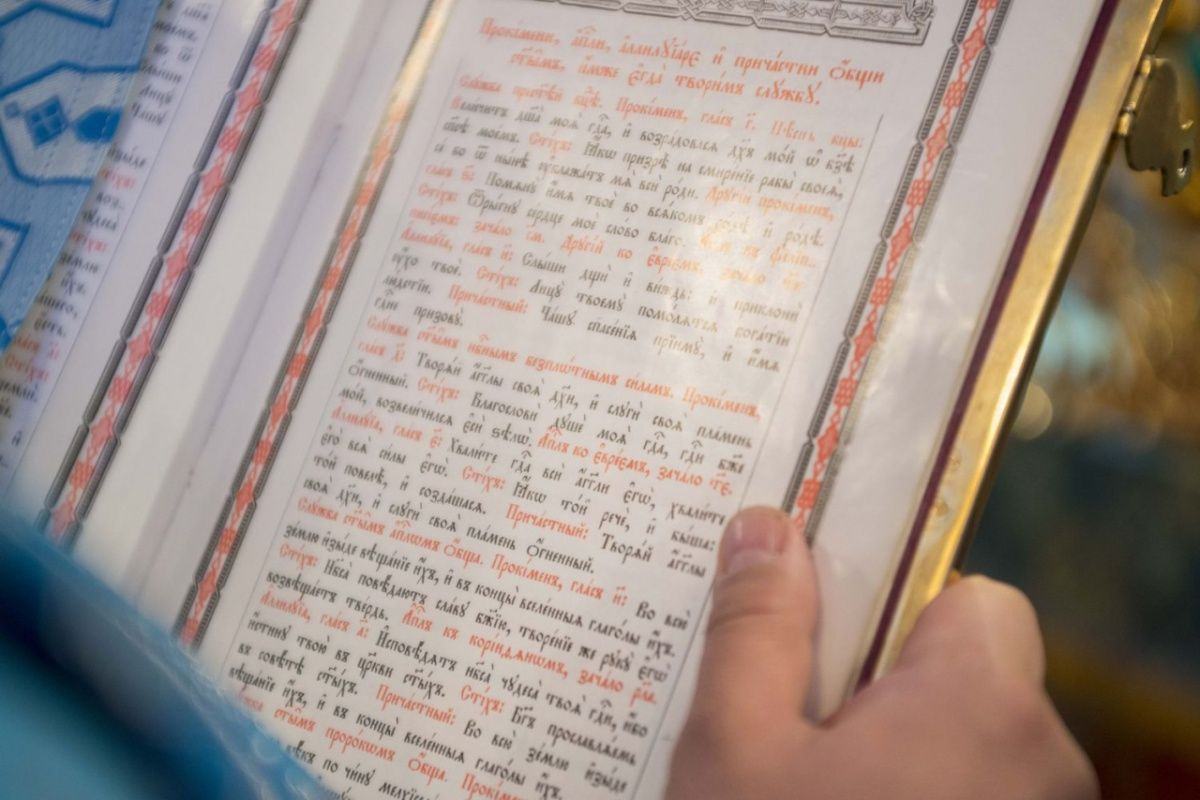 Прокі́мени, а҆пⷭ҇ли, а҆ллилꙋїа́ре и҆ прича́стни ѻ҆́бщи
ст҃ы̑мъ, и҆̀мже є҆гда̀ твори́мъ слꙋ́жбꙋ.
Слꙋ́жба прест҃ѣ́й бц҃ѣ. Прокі́менъ, гла́съ г҃. Пѣ́снь бцⷣы:
Вели́читъ дш҃а̀ моѧ̀ гдⷭ҇а, и҆ возра́довасѧ дх҃ъ мо́й ѡ҆ бз҃ѣ
сп҃сѣ мое́мъ. Сті́хъ: Ꙗ҆́кѡ призрѣ̀ на смире́нїе рабы̀ своеѧ̀,
сѐ бо ѿ нн҃ѣ ᲂу҆блажа́тъ мѧ̀ всѝ ро́ди. Дрꙋгі́й прокі́менъ,
Помѧнꙋ̀ и҆́мѧ твоѐ во всѧ́комъ ро́дѣ и҆ ро́дѣ.
Сті́хъ: Ѿры́гнꙋ се́рдце моѐ сло́во бл҃го.
зача́ло с҃м. Дрꙋгі́й ко є҆вре́ємъ, зача́ло
А҆ллилꙋ́їа, гла́съ и҃: Слы́ши дщѝ и҆ ви́ждь: и҆ приклонѝ
ᲂу҆́хо твоѐ. Сті́хъ: Лицꙋ̀ твоемꙋ̀ помо́лѧтсѧ бога́тїи
лю́дстїи. Прича́стный: Ча́шꙋ сп҃се́нїѧ прїимꙋ̀, и҆ и҆́мѧ
гдⷭ҇не призовꙋ̀.
Слꙋ́жба ст҃ы̑мъ нбⷭ҇нымъ безпло́тнымъ си́ламъ. Прокі́менъ,
гла́съ д҃: Творѧ́й а҆́гг҃лы своѧ̑ дꙋ́хи, и҆ слꙋги̑ своѧ̑ пла́мень
ѻ҆́гненный. Сті́хъ: Благословѝ дꙋшѐ моѧ̀ гдⷭ҇а, гдⷭ҇и бж҃е
мо́й, возвели́чилсѧ є҆сѝ ѕѣлѡ̀. А҆пⷭ҇лъ ко є҆вре́ємъ, зача́ло т҃е.
А҆ллилꙋ́їа, гла́съ є҃: Хвали́те гдⷭ҇а всѝ а҆́гг҃ли є҆гѡ̀, хвали́те
є҆го̀ всѧ̑ си̑лы є҆гѡ̀. Сті́хъ: Ꙗ҆́кѡ то́й речѐ, и҆ бы́ша:
то́й повелѣ̀, и҆ созда́шасѧ. Прича́стный: Творѧ́й а҆́гг҃лы
своѧ̑ дꙋ́хи, и҆ слꙋги̑ своѧ̑ пла́мень ѻ҆́гненный.
Слꙋ́жба ст҃ы̑мъ а҆пⷭ҇лѡмъ ѻ҆́бща. Прокі́менъ, гла́съ и҃: Во всю̀
зе́млю и҆зы́де вѣща́нїе и҆́хъ, и҆ въ концы̀ вселе́нныѧ глаго́лы и҆́хъ.
Сті́хъ: Нб҃са̀ повѣ́даютъ сла́вꙋ бж҃їю, творе́нїе же рꙋкꙋ̀ є҆гѡ̀
возвѣща́етъ тве́рдь. А҆пⷭ҇лъ къ корі́нѳѧнѡмъ, зача́ло рл҃а.
А҆ллилꙋ́їа, гла́съ а҃: И҆сповѣ́дѧтъ нб҃са̀ чꙋдеса̀ твоѧ̑ гдⷭ҇и, и҆́бо
и҆́стинꙋ твою̀ въ цр҃кви ст҃ы́хъ. Сті́хъ: Бг҃ъ прославлѧ́емь
въ совѣ́тѣ ст҃ы́хъ. Прича́стный: Во всю̀ зе́млю и҆зы́де
вѣща́нїе и҆́хъ, и҆ въ концы̀ вселе́нныѧ глаго́лы и҆́хъ.
ст҃ы̑мъ проро́кѡмъ ѻ҆́бща.
по чи́нꙋ